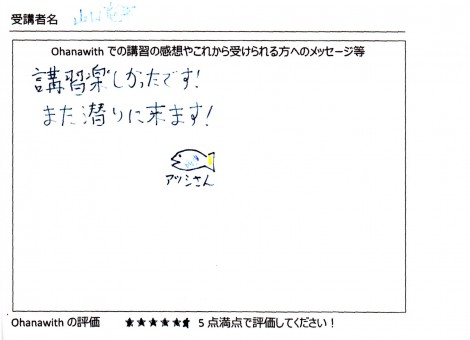 受講者名
Ohanawith での講習の感想やこれから受けられる方へのメッセージ等
講習楽しかったです!
また潜りに来ます!
アツシさん
Ohanawith の評価 ★★★★★ 5 点満点で評価してください!